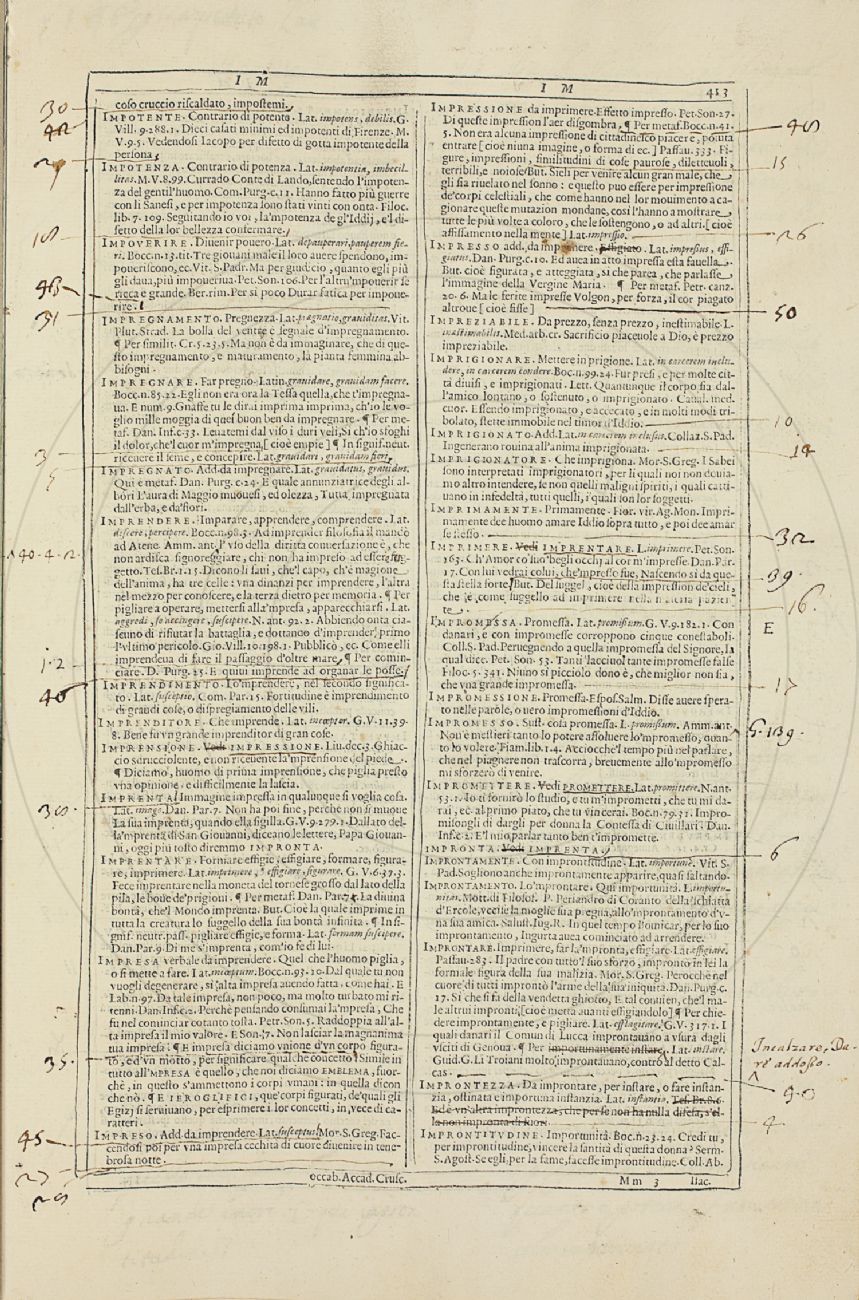 I M
I M
413
coſo cruccio riſcaldato, impoſtemi.
IMPOTENTE. Contrario di potente. Lat. impotens, debilis. G.
Vill. 9.288.1. Dieci caſati minimi ed impotenti di Firenze. M.
V. 9.5. Vedendoſi Iacopo per difetto di gotta impotente della
perſona.
IMPOTENZA. Contrario di potenza. Lat. impotentia, imbecil-
litas. M.V.8.99. Currado Conte di Lando, ſentendo l'impoten-
za del gentil'huomo. Com. Purg. c.11. Hanno fatto più guerre
con li Saneſi, e per impotenza ſono ſtati vinti con onta. Filoc.
lib. 7. 109. Seguitando io voi, la'mpotenza de gl'Iddij, e'l di-
fetto della lor bellezza confermare.
IMPOVERIRE. Divenir povero. Lat. depauperari, pauperem fie-
ri. Bocc.n.13.tit. Tre giovani male il loro avere ſpendono, im-
poveriſcono, ec. Vit. S. Padr. Ma per giudicio, quanto egli più
gli dava, più impoveriva. Pet. Son. 106. Per l'altru'mpoverir ſe
ricca e grande. Ber. rim. Per sì poco Durar fatica per impove-
rire.
IMPREGNAMENTO. Pregnezza. Lat. prægnatio, graviditas. Vit.
Plut. Strad. La bolla del ventre è ſegnale d'impregnamento.
¶ Per ſimilit. Cr. 5.23.5. Ma non è da immaginare, che di que-
ſto impregnamento, e maturamento, la pianta femmina ab-
biſogni.
IMPREGNARE. Far pregno. Latin. gravidare, gravidam facere.
Bocc.n.85.22. Egli non era ora la Teſſa quella, che t'impregna-
va. E num. 9. Gnaffe tu le dirai imprima imprima, ch'io le vo-
glio mille moggia di quel buon ben da impregnare. ¶ Per me-
taf. Dan. Inf. c. 33. Levatemi dal viſo i duri veli, Sì ch'io sfoghi
il dolor, che'l cuor m'impregna, [cioè empie] ¶ In ſignif. neut.
ricevere il ſeme, e concepire. Lat. gravidari, gravidam fieri.
IMPREGNATO. Add. da impregnare. Lat. gravidatus, gravidus.
Qui è metaf. Dan. Purg. c.24. E quale annunziatrice degli al-
bori L'aura di Maggio muoveſi, ed olezza, Tutta impregnata
dall'erba, e da'fiori.
IMPRENDERE. Imparare, apprendere, comprendere. Lat.
diſcere, percipere. Bocc.n.98.3. Ad imprender filoſofia il mandò
ad Atene. Amm. ant. L'uſo della diritta converſazione è, che
non ardiſca ſignoreggiare, chi non ha impreſo ad eſſere ſug-
getto. Teſ. Br. 1.15. Dicono li ſavi, che'l capo, ch'è magione
dell'anima, ha tre celle: una dinanzi per imprendere, l'altra
nel mezzo per conoſcere, e la terza dietro per memoria. ¶ Per
pigliare a operare, metterſi alla'mpreſa, apparecchiarſi. Lat.
aggredi, ſe accingere, ſuſcipere. N. ant. 92.2. Abbiendo onta cia-
ſcuno di rifiutar la battaglia, e dottando d'imprender' primo
l'ultimo pericolo. Gio. Vill. 10.198.1. Pubblicò, ec. Come elli
imprendeva di fare il paſſaggio d'oltre mare, ¶ Per comin-
ciare. D. Purg. 25. E quivi imprende ad organar le poſſe.
IMPRENDIMENTO. Lo'mprendere, nel ſecondo ſignifica-
to. Lat. ſuſceptio. Com. Par. 15. Fortitudine è imprendimento
di grandi coſe, o diſpregiamento delle vili.
IMPRENDITORE. Che imprende. Lat. inceptor. G.V. 11.39.
8. Bene fu un grande imprenditor di gran coſe.
IMPRENSIONE. Vedi IMPRESSIONE. Liv. dec. 3. Ghiac-
cio sdrucciolente, e non ricevente la'mprenſione del piede.
¶ Diciamo, huomo di prima imprenſione, che piglia preſto
una opinione, e difficilmente la laſcia.
IMPRENTA. Immagine impreſſa in qualunque ſi voglia coſa.
Lat. imago. Dan. Par. 7. Non ha poi fine, perchè non ſi muove
La ſua imprenta, quando ella ſigilla. G.V. 9.279.1. Dall'ato del-
la'mprenta di San Giovanni, diceano le lettere, Papa Giovan-
ni, oggi più toſto diremmo IMPRONTA.
IMPRENTARE. Formare effigie, effigiare, formare, figura-
re, imprimere. Lat. imprimere, effigiare, figurare. G. V. 6.37.3.
Fece imprentare nella moneta del torneſe groſſo dal lato della
pila, le bove de'prigioni. ¶ Per metaf. Dan. Par. 7. La divina
bontà, che'l Mondo imprenta. But. Cioè la quale imprime in
tutta la creatura lo ſuggello della ſua bontà infinita. ¶ In ſi-
gnif. neutr. paſſ. pigliare effigie, e forma. Lat. formam ſuſcipere.
Dan. Par. 9. Di me s'imprenta, com'io fe di lui.
IMPRESA verbale da imprendere. Quel che l'huomo piglia,
o ſi mette a fare. Lat. inceptum. Bocc.n.93.10. Dal quale tu non
vuogli degenerare, sì alta impreſa avendo fatta, come hai. E
Lab. n. 97. Da tale impreſa, non poco, ma molto turbato mi ri-
tenni. Dan. Inf. c. 2. Perchè penſando conſumai la'mpreſa, Che
fu nel cominciar cotanto toſta. Petr. Son. 5. Raddoppia all'al-
ta impreſa il mio valore. E Son. 7. Non laſciar la magnanima
tua impreſa. ¶ E impreſa diciamo unione d'un corpo figura-
to, e d'un motto, per ſignificare qualche concetto. Simile in
tutto all'IMPRESA è quello, che noi diciamo EMBLEMA, fuor-
chè, in queſto s'ammettono i corpi umani: in quella dicon
che nò. ¶ E IEROGLIFICI, que'corpi figurati, de'quali gli
Egizj ſi ſervivano, per eſprimere i lor concetti, in vece di ca-
ratteri.
IMPRESO. Add. da imprendere. Lat. ſuſceptus. Mor. S. Greg. Fac-
cendoſi poi per una impreſa cechità di cuore divenire in tene-
broſa notte.
occab. Accad. Cruſc.
IMPRESSIONE da imprimere. Effetto impreſſo. Pet. Son. 27.
Di queſte impreſſion l'aer diſgombra, ¶ Per metaf. Bocc.n.41.
5. Non era alcuna impreſſione di cittadineſco piacere, potuta
entrare [cioè niuna imagine, o forma di ec.] Paſſav. 333. Fi-
gure, impreſſioni, ſimilitudini di coſe pauroſe, dilettevoli,
terribili, e noioſe. But. Sieli per venire alcun gran male, che
gli ſia rivelato nel ſonno: e queſto può eſſere per impreſſione
de'corpi celeſtiali, che come hanno nel lor movimento a ca-
gionare queſte mutazion mondane, così l'hanno a moſtrare
tutte le più volte a coloro, che le ſoſtengono, o ad altri. [cioè
affiſſamento nella mente] Lat. impreſſio.
IMPRESSO. add. da imprimere. Effigiato. Lat. impreſſus, effi-
giatus. Dan. Purg. c. 10. Ed avea in atto impreſſa eſta favella.
But. cioè figurata, e atteggiata, sì che parea, che parlaſſe
l'immagine della Vergine Maria. ¶ Per metaf. Petr. canz.
20. 6. Ma le ferite impreſſe Volgon, per forza, il cor piagato
altrove [cioè fiſſe]
IMPREZIABILE. Da prezzo, ſenza prezzo, ineſtimabile. L.
inæſtimabilis. Med. arb. cr. Sacrificio piacevole a Dio, è prezzo
impreziabile.
IMPRIGIONARE. Mettere in prigione. Lat. in carcerem inclu-
dere, in carcerem condere. Boc.n.99.24. Fur preſi, e per molte cit-
tà diviſi, e imprigionati. Lett. Quantunque il corpo ſia dal-
l'amico lontano, o ſoſtenuto, o imprigionato. Caval. med.
cuor. Eſſendo imprigionato, e accecato, e in molti modi tri-
bolato, ſtette immobile nel timor d'Iddio.
IMPRIGIONATO. Add. Lat. in carcerem incluſus. Collaz. S. Pad.
Ingenerano rovina all'anima imprigionata.
IMPRIGIONATORE. Che imprigiona. Mor. S. Greg. I Sabei
ſono interpretati imprigionatori, per li quali noi non dovia-
mo altro intendere, ſe non quelli maligni ſpiriti, i quali catti-
vano in infedeltà, tutti quelli, i quali ſon lor ſoggetti.
IMPRIMAMENTE. Primamente. Fior. vir. Ag. Mon. Impri-
mamente dee huomo amare Iddio ſopra tutto, e poi dee amar
ſe ſteſſo.
IMPRIMERE. Vedi IMPRENTARE. L. imprimere. Pet. Son.
163. Ch'Amor co'ſuo'begli occhj al cor m'impreſſe. Dan. Par.
17. Con lui vedrai colui, che'mpreſſo fue, Naſcendo sì da que-
ſta ſtella forte, But. Del ſuggel, cioè della impreſſion de'cieli,
IMPROMESSA. Promeſſa. Lat. promiſſum. G. V. 9.182.1. Con
danari, e con impromeſſe corroppono cinque coneſtaboli.
Coll. S. Pad. Pervegnendo a quella impromeſſa del Signore, la
qual dice. Pet. Son. 53. Tanti lacciuol tante impromeſſe falſe
Filoc. 5.341. Niuno sì picciolo dono è, che miglior non ſia,
che una grande impromeſſa.
IMPROMESSIONE. Promeſſa. Eſpoſ. Salm. Diſſe avere ſpera-
to nelle parole, o vero impromeſſioni d'Iddio.
IMPROMESSO. Suſt. coſa promeſſa. L. promiſſum. Amm. ant.
Non è meſtieri tanto lo potere aſſolvere lo'mpromeſſo, quan-
to lo volere. Fiam. lib. 1.4. Acciocche'l tempo più nel parlare,
che nel piagnere non traſcorra, brevemente allo'mpromeſſo
mi sforzerò di venire.
IMPROMETTERE. Vedi PROMETTERE. Lat. promittere. N. ant.
53.1. Io ti fornirò lo ſtudio, e tu m'imprometti, che tu mi da-
rai, ec. al primo piato, che tu vincerai. Boc.n.79.31. Impro-
miſongli di dargli per donna la Conteſſa di Civillari. Dan.
Inf. c. 2. E'l mio parlar tanto ben t'impromette.
IMPRONTA. Vedi IMPRENTA.
IMPRONTAMENTE. Con improntitudine. Lat. importunè. Vit. S.
Pad. Sogliono anche improntamente apparire, quaſi ſaltando.
IMPRONTAMENTO. Lo'mprontare. Qui importunità. L. importu-
nitas. Mott. di Filoſof. P. Periandro di Coranto della ſchiatta
d'Ercole, uccife la moglie ſua pregna, allo'mprontamento d'u-
na ſua amica. Saluſt. Iug. R. In quel tempo Bomicar, per lo ſuo
improntamento, Iugurta avea cominciato ad arrendere.
IMPRONTARE. Imprimere, far la'mpronta, effigiare. Lat. effigiare.
Paſſav. 283. Il padre con tutto'l ſuo sforzo, improntò in lei la
formale figura della ſua malizia. Mor. S. Greg. Perocchè nel
cuore di tutti improntò l'arme della ſua iniquità. Dan. Purg. c.
17. Sì che ſi fa della vendetta ghiotto, E tal convien, che'l ma-
le altrui impronti; [cioè metta avanti effigiandolo] ¶ Per chie-
dere improntamente, e pigliare. Lat. efflagitare. G.V. 317.1. I
quali danari il Comun di Lucca improntavano a uſura dagli
uſciti di Genova. ¶ Per importunamente inſtare. Lat. inſtare.
Guid. G. Li Troiani molto improntavano, contro al detto Cal-
cas.
IMPRONTEZZA. Da improntare, per inſtare, o fare inſtan-
zia, oſtinata e importuna inſtanzia. Lat. inſtantia. Teſ. Br. 8.6.
Ed è un'altra improntezza, che per ſe non ha nulla difeſa, s'el-
la non impronta di fuori.
IMPRONTITUDINE. Importunità. Bocc.n.23.24. Credi tu,
per improntitudine, vincere la ſantità di queſta donna? Serm.
S. Agoſt. Se egli, per la fame, faceſſe improntitudine. Coll. Ab.
Mm 3 Iſac.
30
31
3
40.4.2
1.2
35
45
15
26
50
10
32
39
16
E
17
6
Incalzare, Da-
re addosso.
4